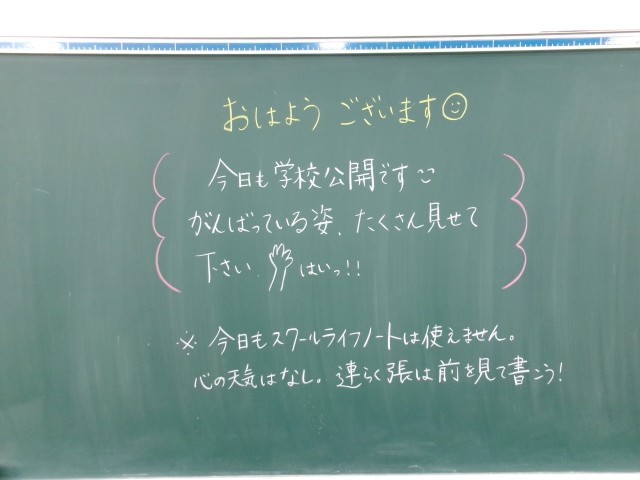 おはようございます
今日も学校公開です
がんばっている姿、たくさん見せて
下さい。はいっ!!
※今日もスクールライフノートは使えません。
心の天気はなし。連らく張は前を見て書こう!